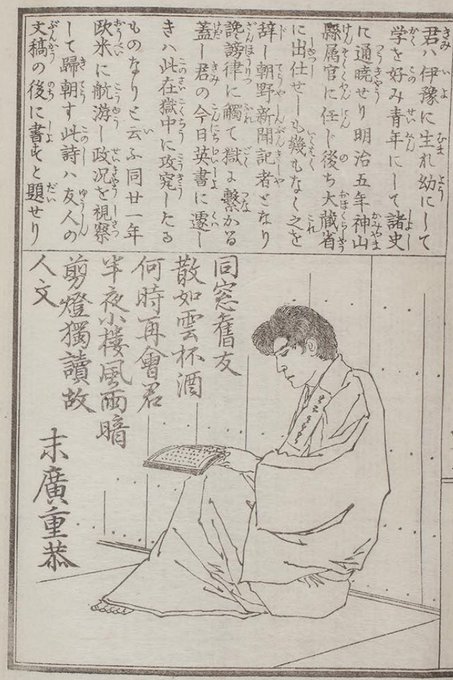 君ハ伊豫に生れ幼にして
学を好み青年にして諸史
に通暁せり明治五年神山
縣属官に任じ後ち大蔵省
に出仕せしも幾もなく之を
辞し朝野新聞記者となり
讒謗律に觸て獄に繋かる
蓋し君の今日英書に邃し
きハ此在獄中に攻究したる
ものなりと云ふ同廿一年
欧米に航游し政況を視察
して歸朝す此詩ハ友人の
文稿の後に書すと題せり
同窓舊友
散如雲杯酒
何時再會君
半夜小樓風雨暗
剪燈獨讀故
人文
末廣重恭